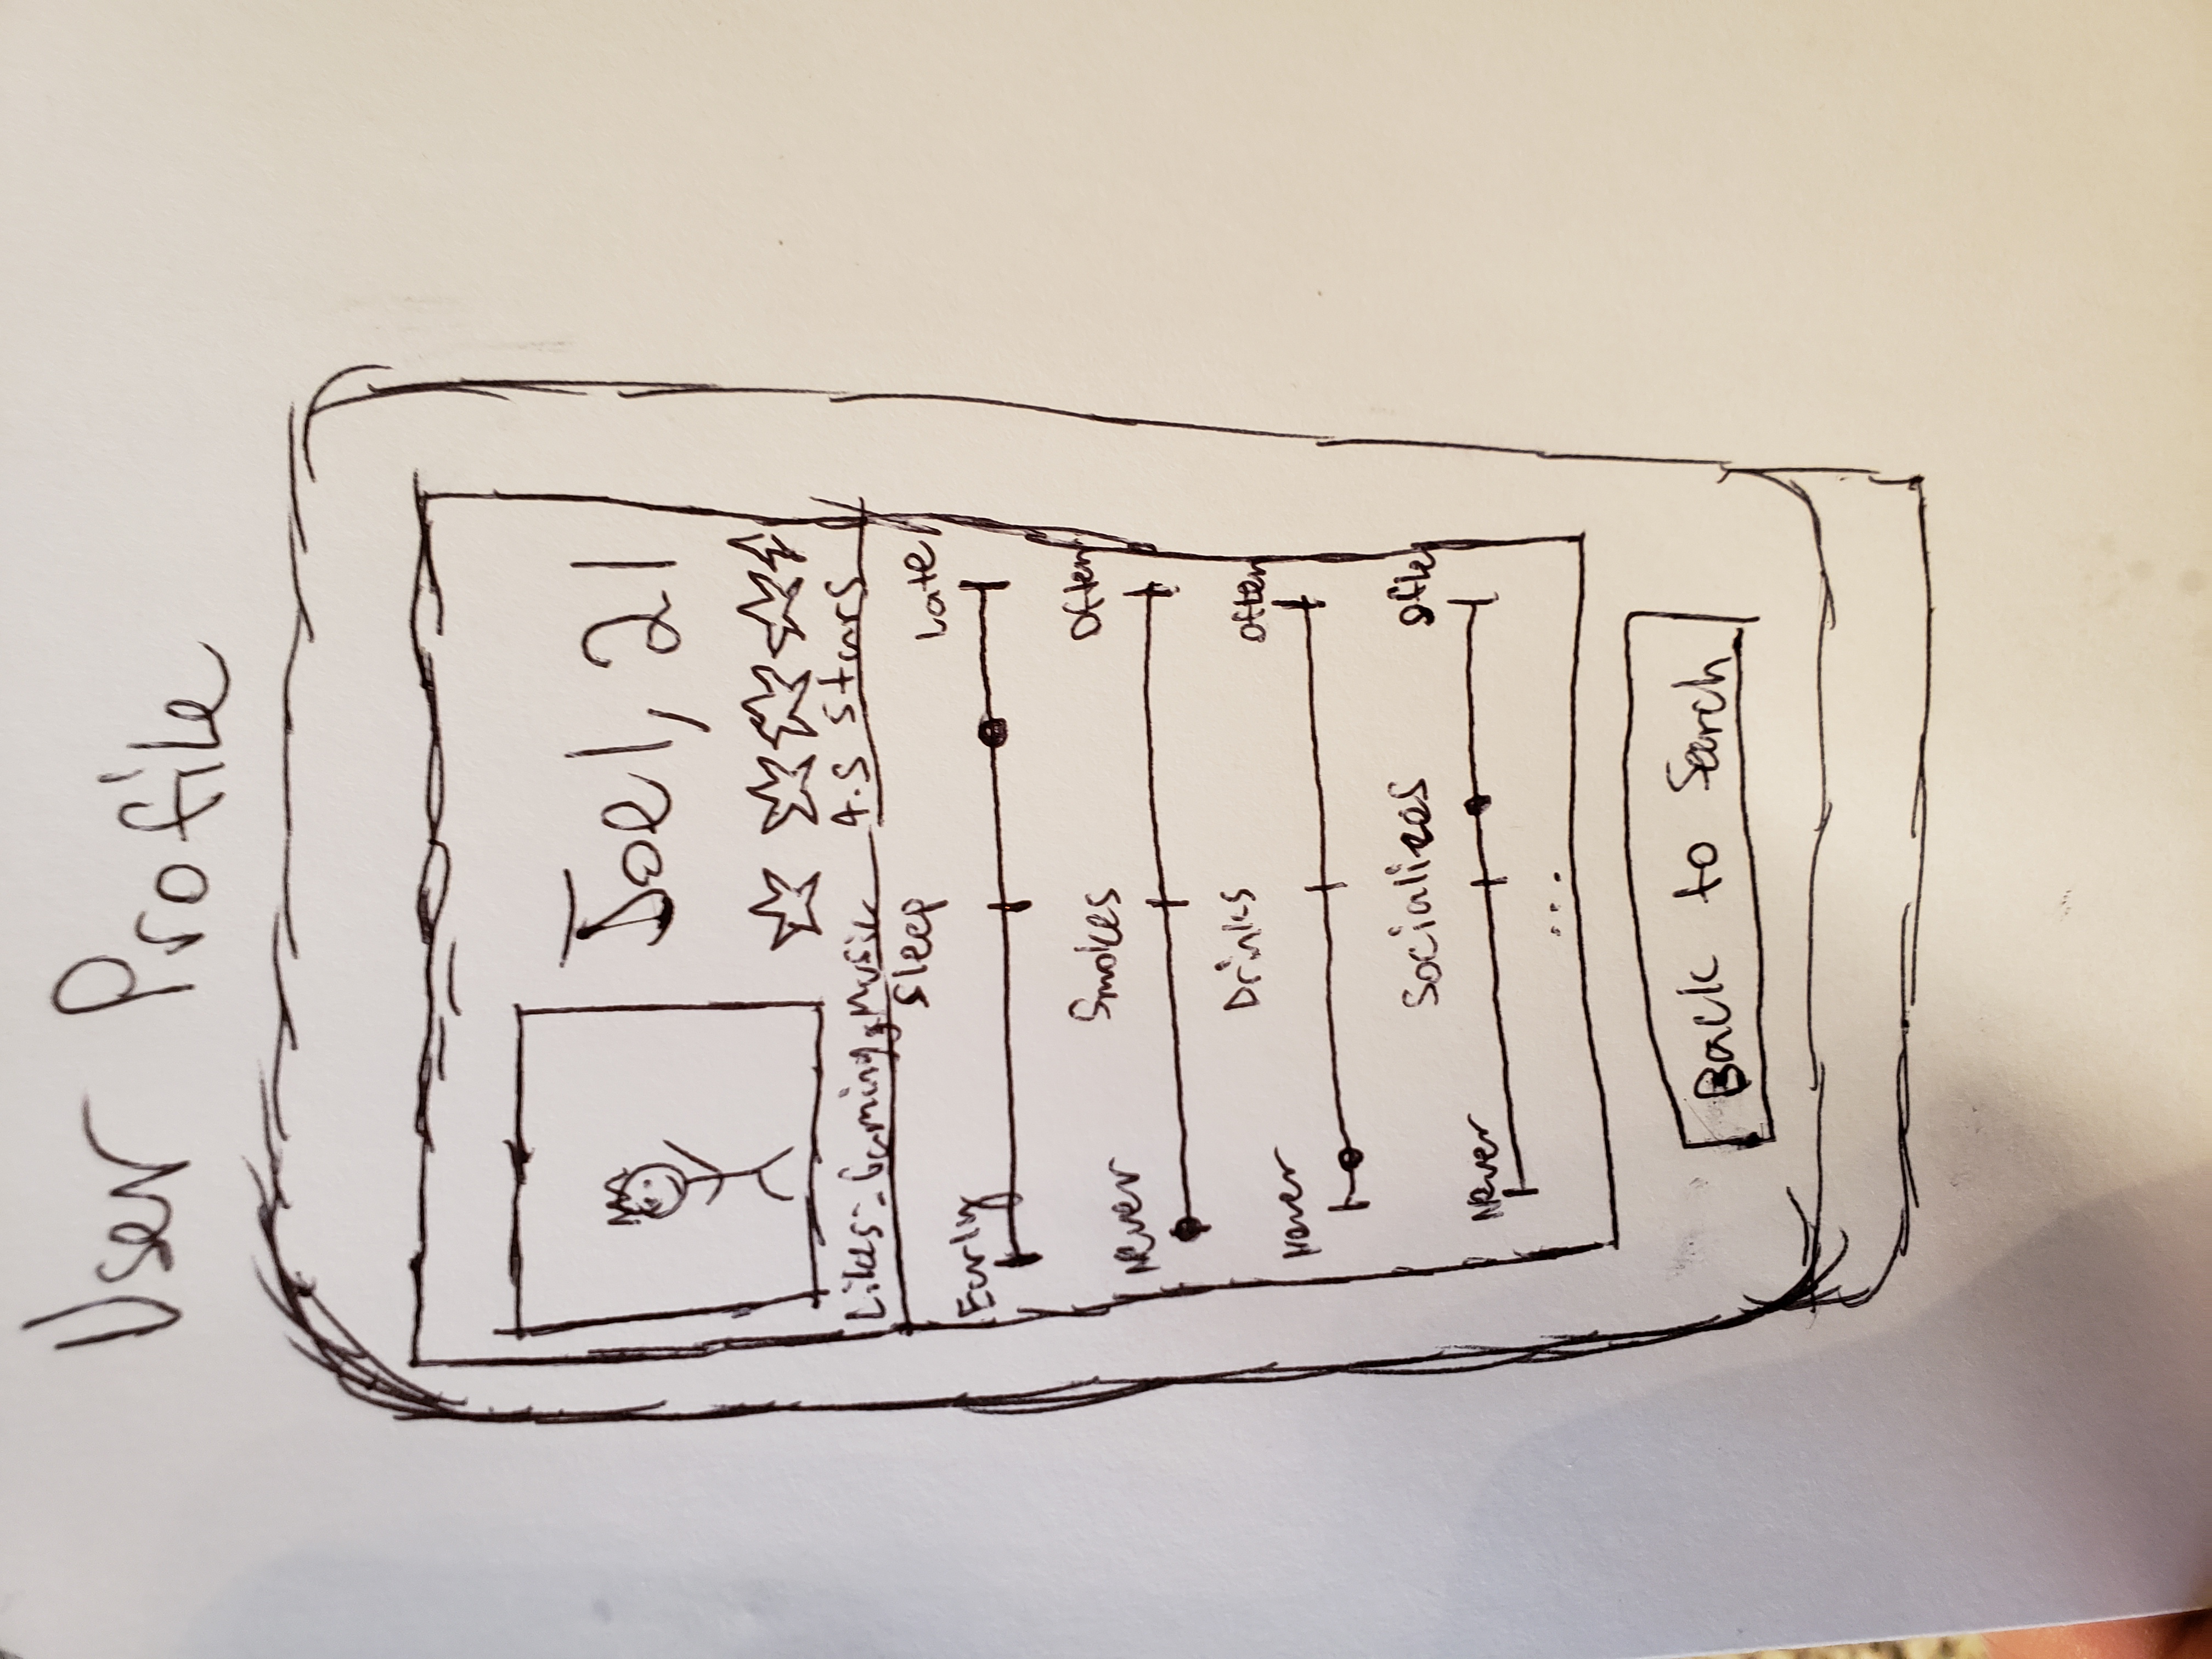 User Profile
Joel, 21
4.5 Stars
Likes: Gaming, Music
Sleep
Early Late
Smokes
Never Often
Drinks
Never Often
Socializes
Never Often
...
Back to Search